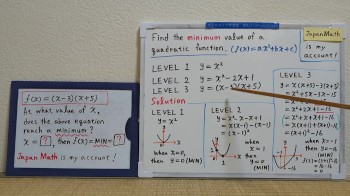 f(x)=(x-3)(x+5)
At what value of x,
does the above equation
reach a minimum?
x = ? then f(x)=MIN= ?
Japan Math is my account!
Find the minimum value of a
quadratic function. (f(x)=ax²+bx+c)
Japan Math
is my
account!
LEVEL 1 y=x²
LEVEL 2 y=x²-2x+1
LEVEL 3 y=(x-3)(x+5)
Solution
LEVEL 1
y=x²
when x=0,
then y=0 (MIN)
LEVEL 2
y=x²-2x+1
=x(x-1)-(x-1)
=(x-1)²
when x=1
then
y=0
(MIN)
LEVEL 3
y=x(x+5)-3(x+5)
=x²+5x-3x-15
=x²+2x-15
=(x+1)²-16
when x=-1
then y=-16
(MIN)